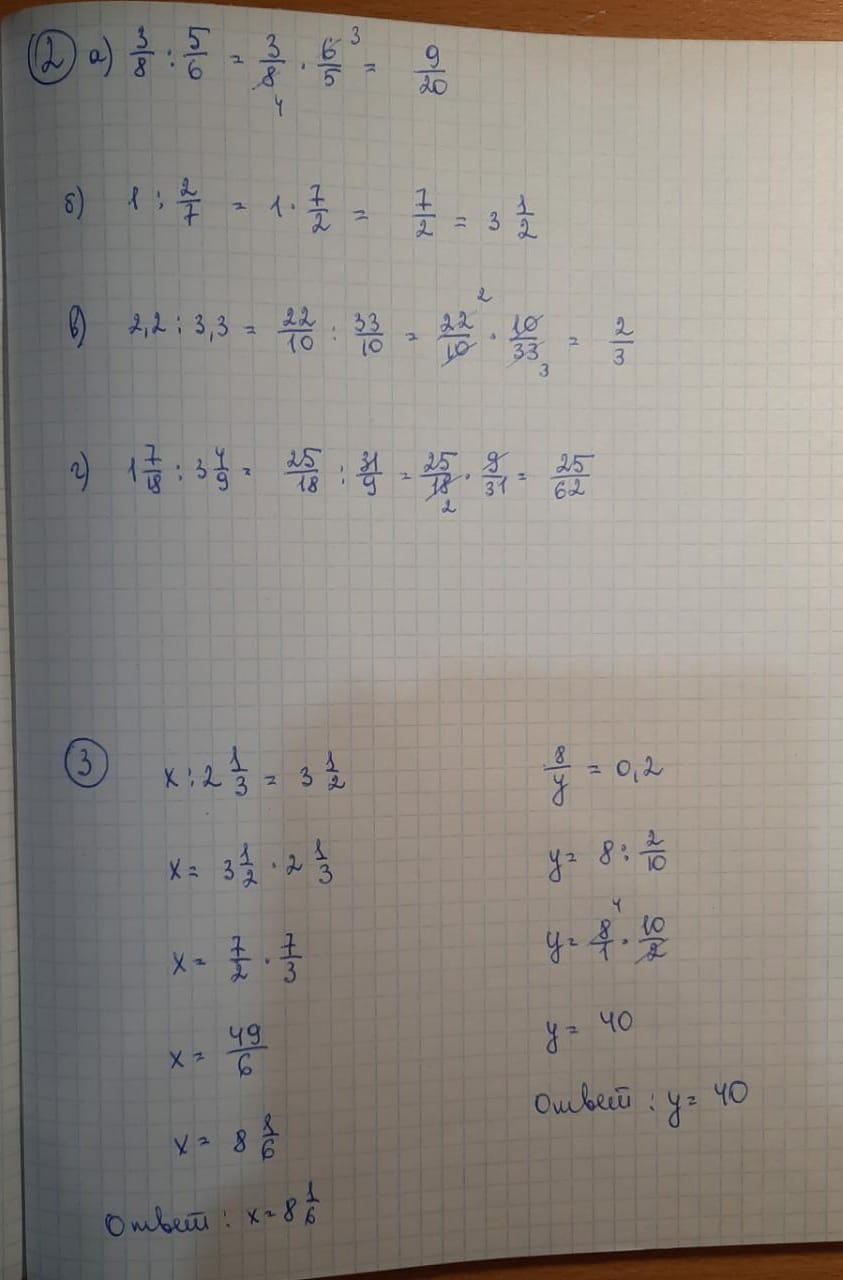 2 а) 3/8 : 5/6 = 3/8 · 6/5 = 9/20
3
4
б) 1 : 2/7 = 1 · 7/2 = 7/2 = 3 1/2
в) 2,2 : 3,3 = 22/10 : 33/10 = 22/10 · 10/33 = 2/3
2
3
г) 1 7/18 : 3 4/9 = 25/18 : 31/9 = 25/18 · 9/31 = 25/62
2
3 x : 2 1/3 = 3 1/2
x = 3 1/2 · 2 1/3
x = 7/2 · 7/3
x = 49/6
x = 8 1/6
Ответ : x = 8 1/6
8/y = 0,2
y = 8 : 2/10
4
y = 8/1 · 10/2
y = 40
Ответ : y = 40